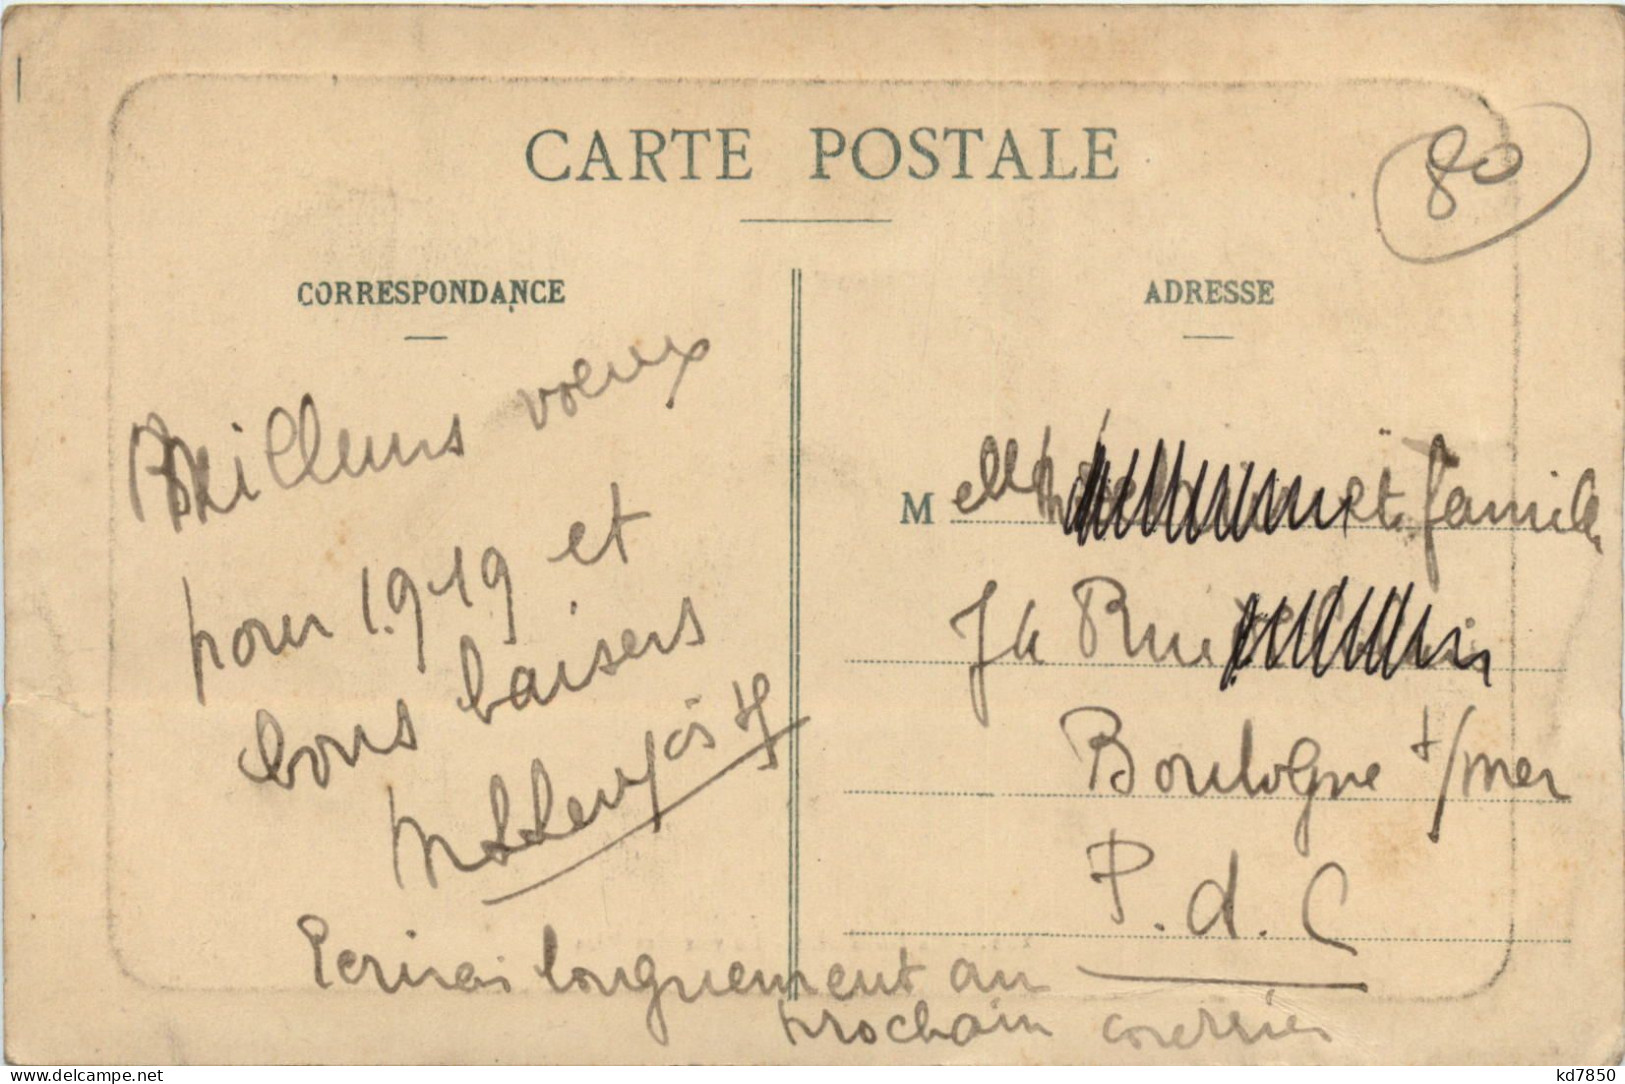 CARTE POSTALE
80
CORRESPONDANCE
Meilleurs voeux
pour 1.919 et
bons baisers
Ecrirai longuement au
prochain courrier
ADRESSE
M elle et famille
Rue
Boulogne s/mer
P. d. C
delcampe.net
kd7850